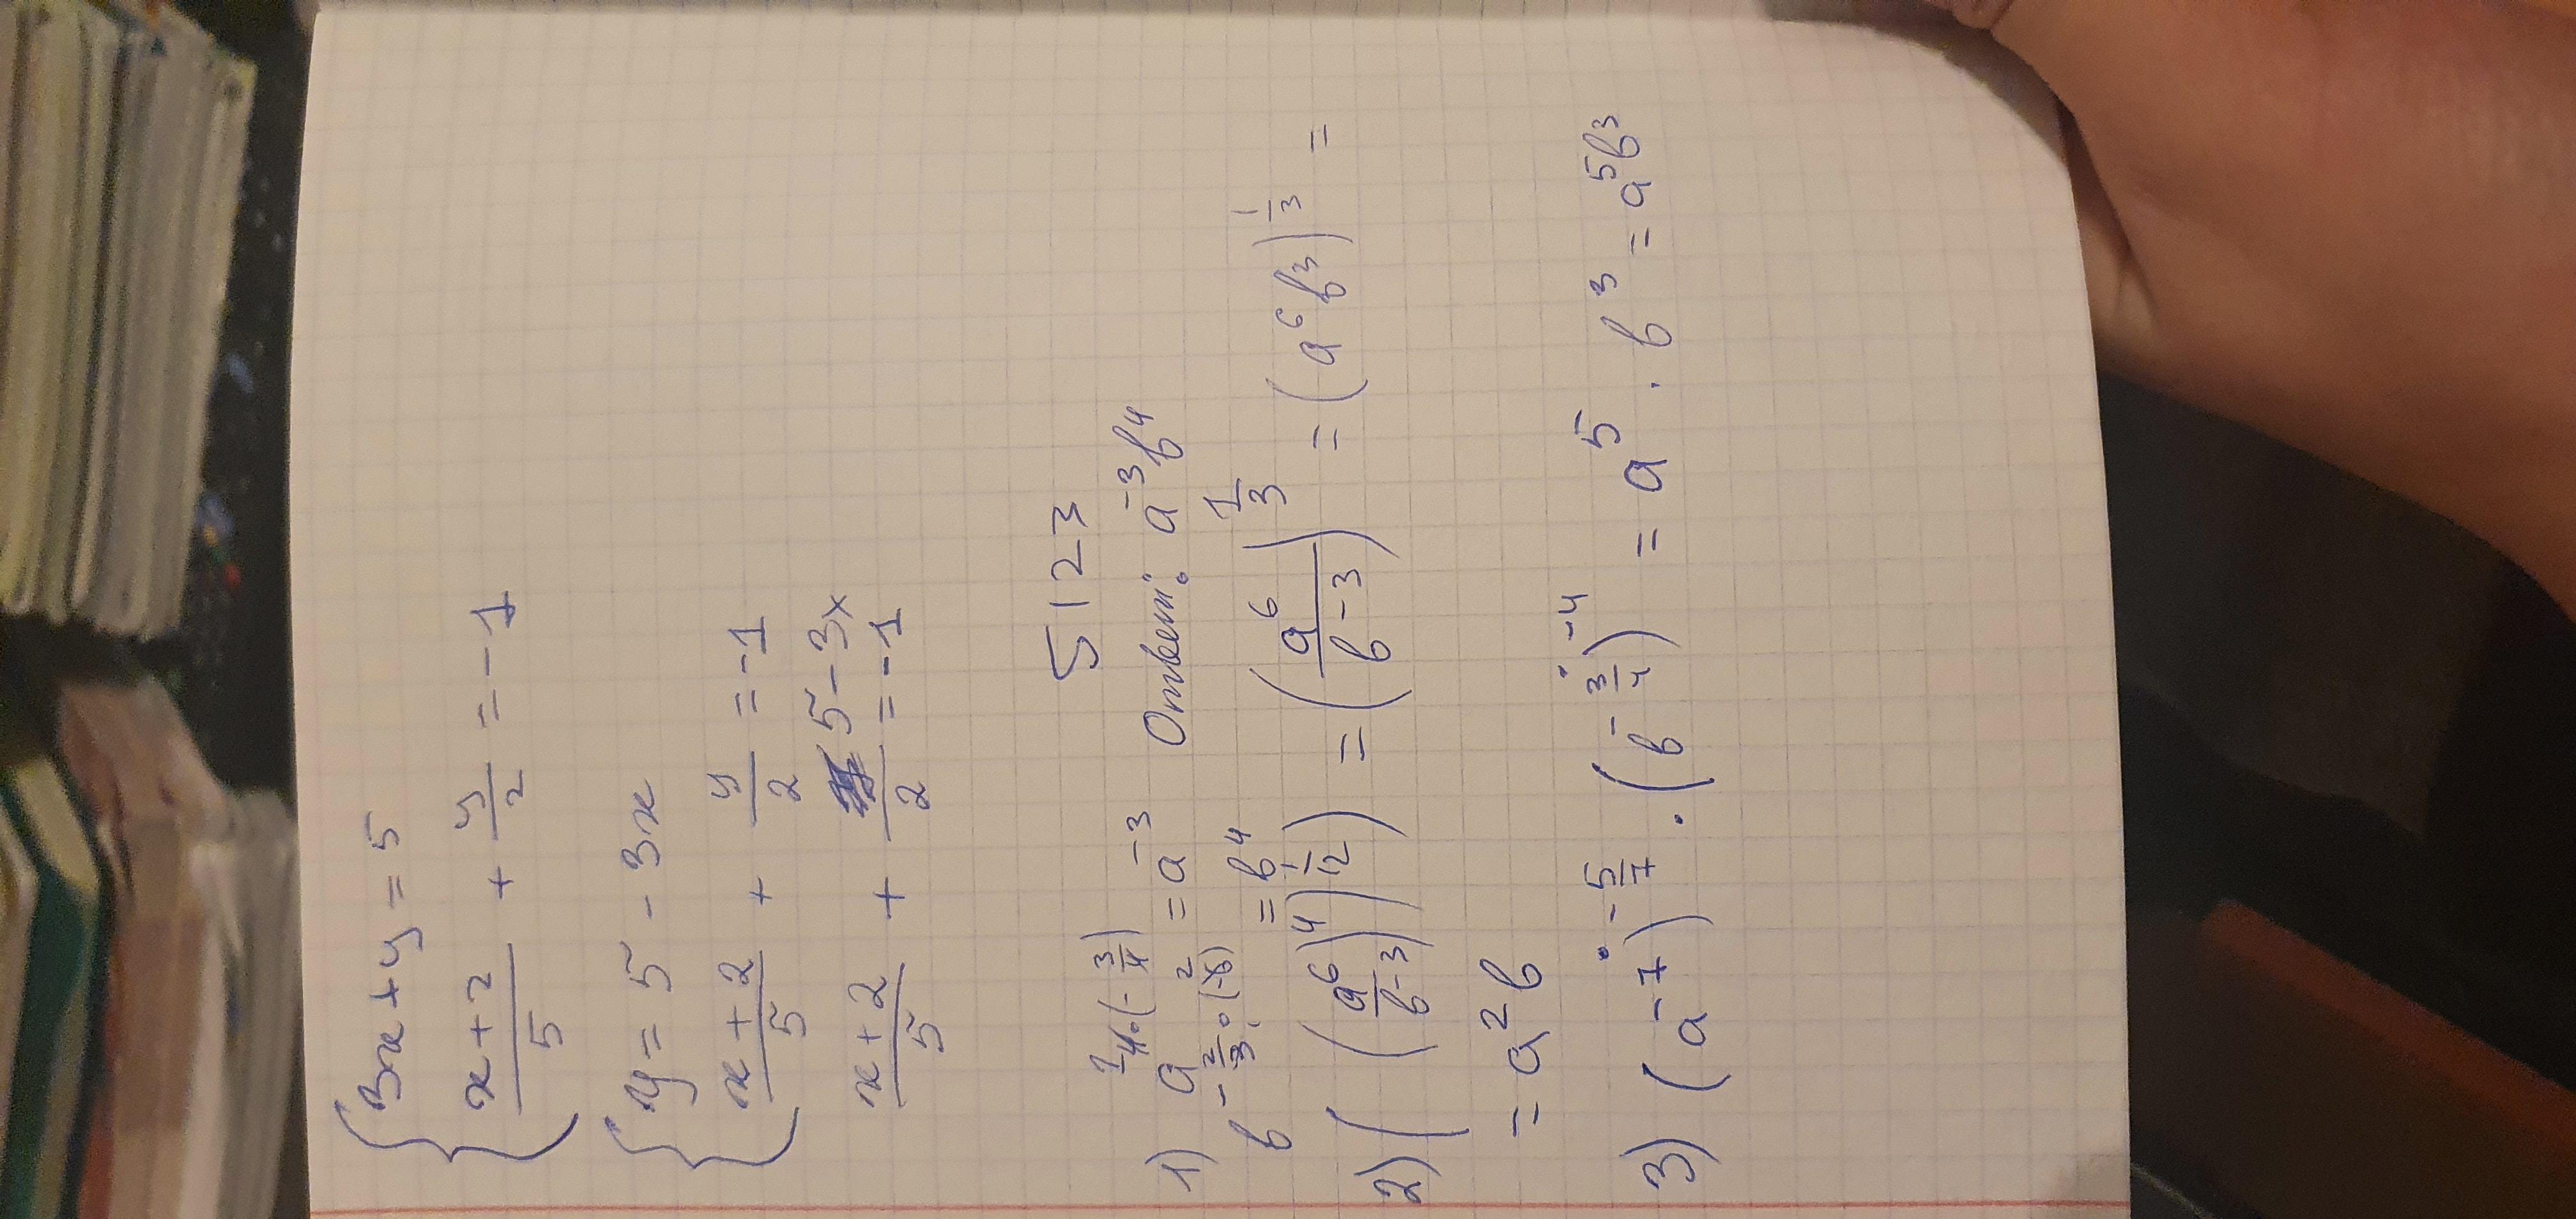 { 3x + y = 5
{ (x+2)/5 + y/2 = -1
{ y = 5 - 3x
{ (x+2)/5 + y/2 = -1
(x+2)/5 + (5-3x)/2 = -1
5123
1) a^(4·(-3/4)) = a^-3 Ответ: a^-3 b^4
b^(-2/3·(-6)) = b^4
2) (((a^6/b^-3)^4)^(1/12)) = (a^6/b^-3)^(1/3) = (a^6 b^3)^(1/3) =
= a^2 b
3) (a^-7)^(-5/7) · (b^(-3/4))^-4 = a^5 · b^3 = a^5 b^3